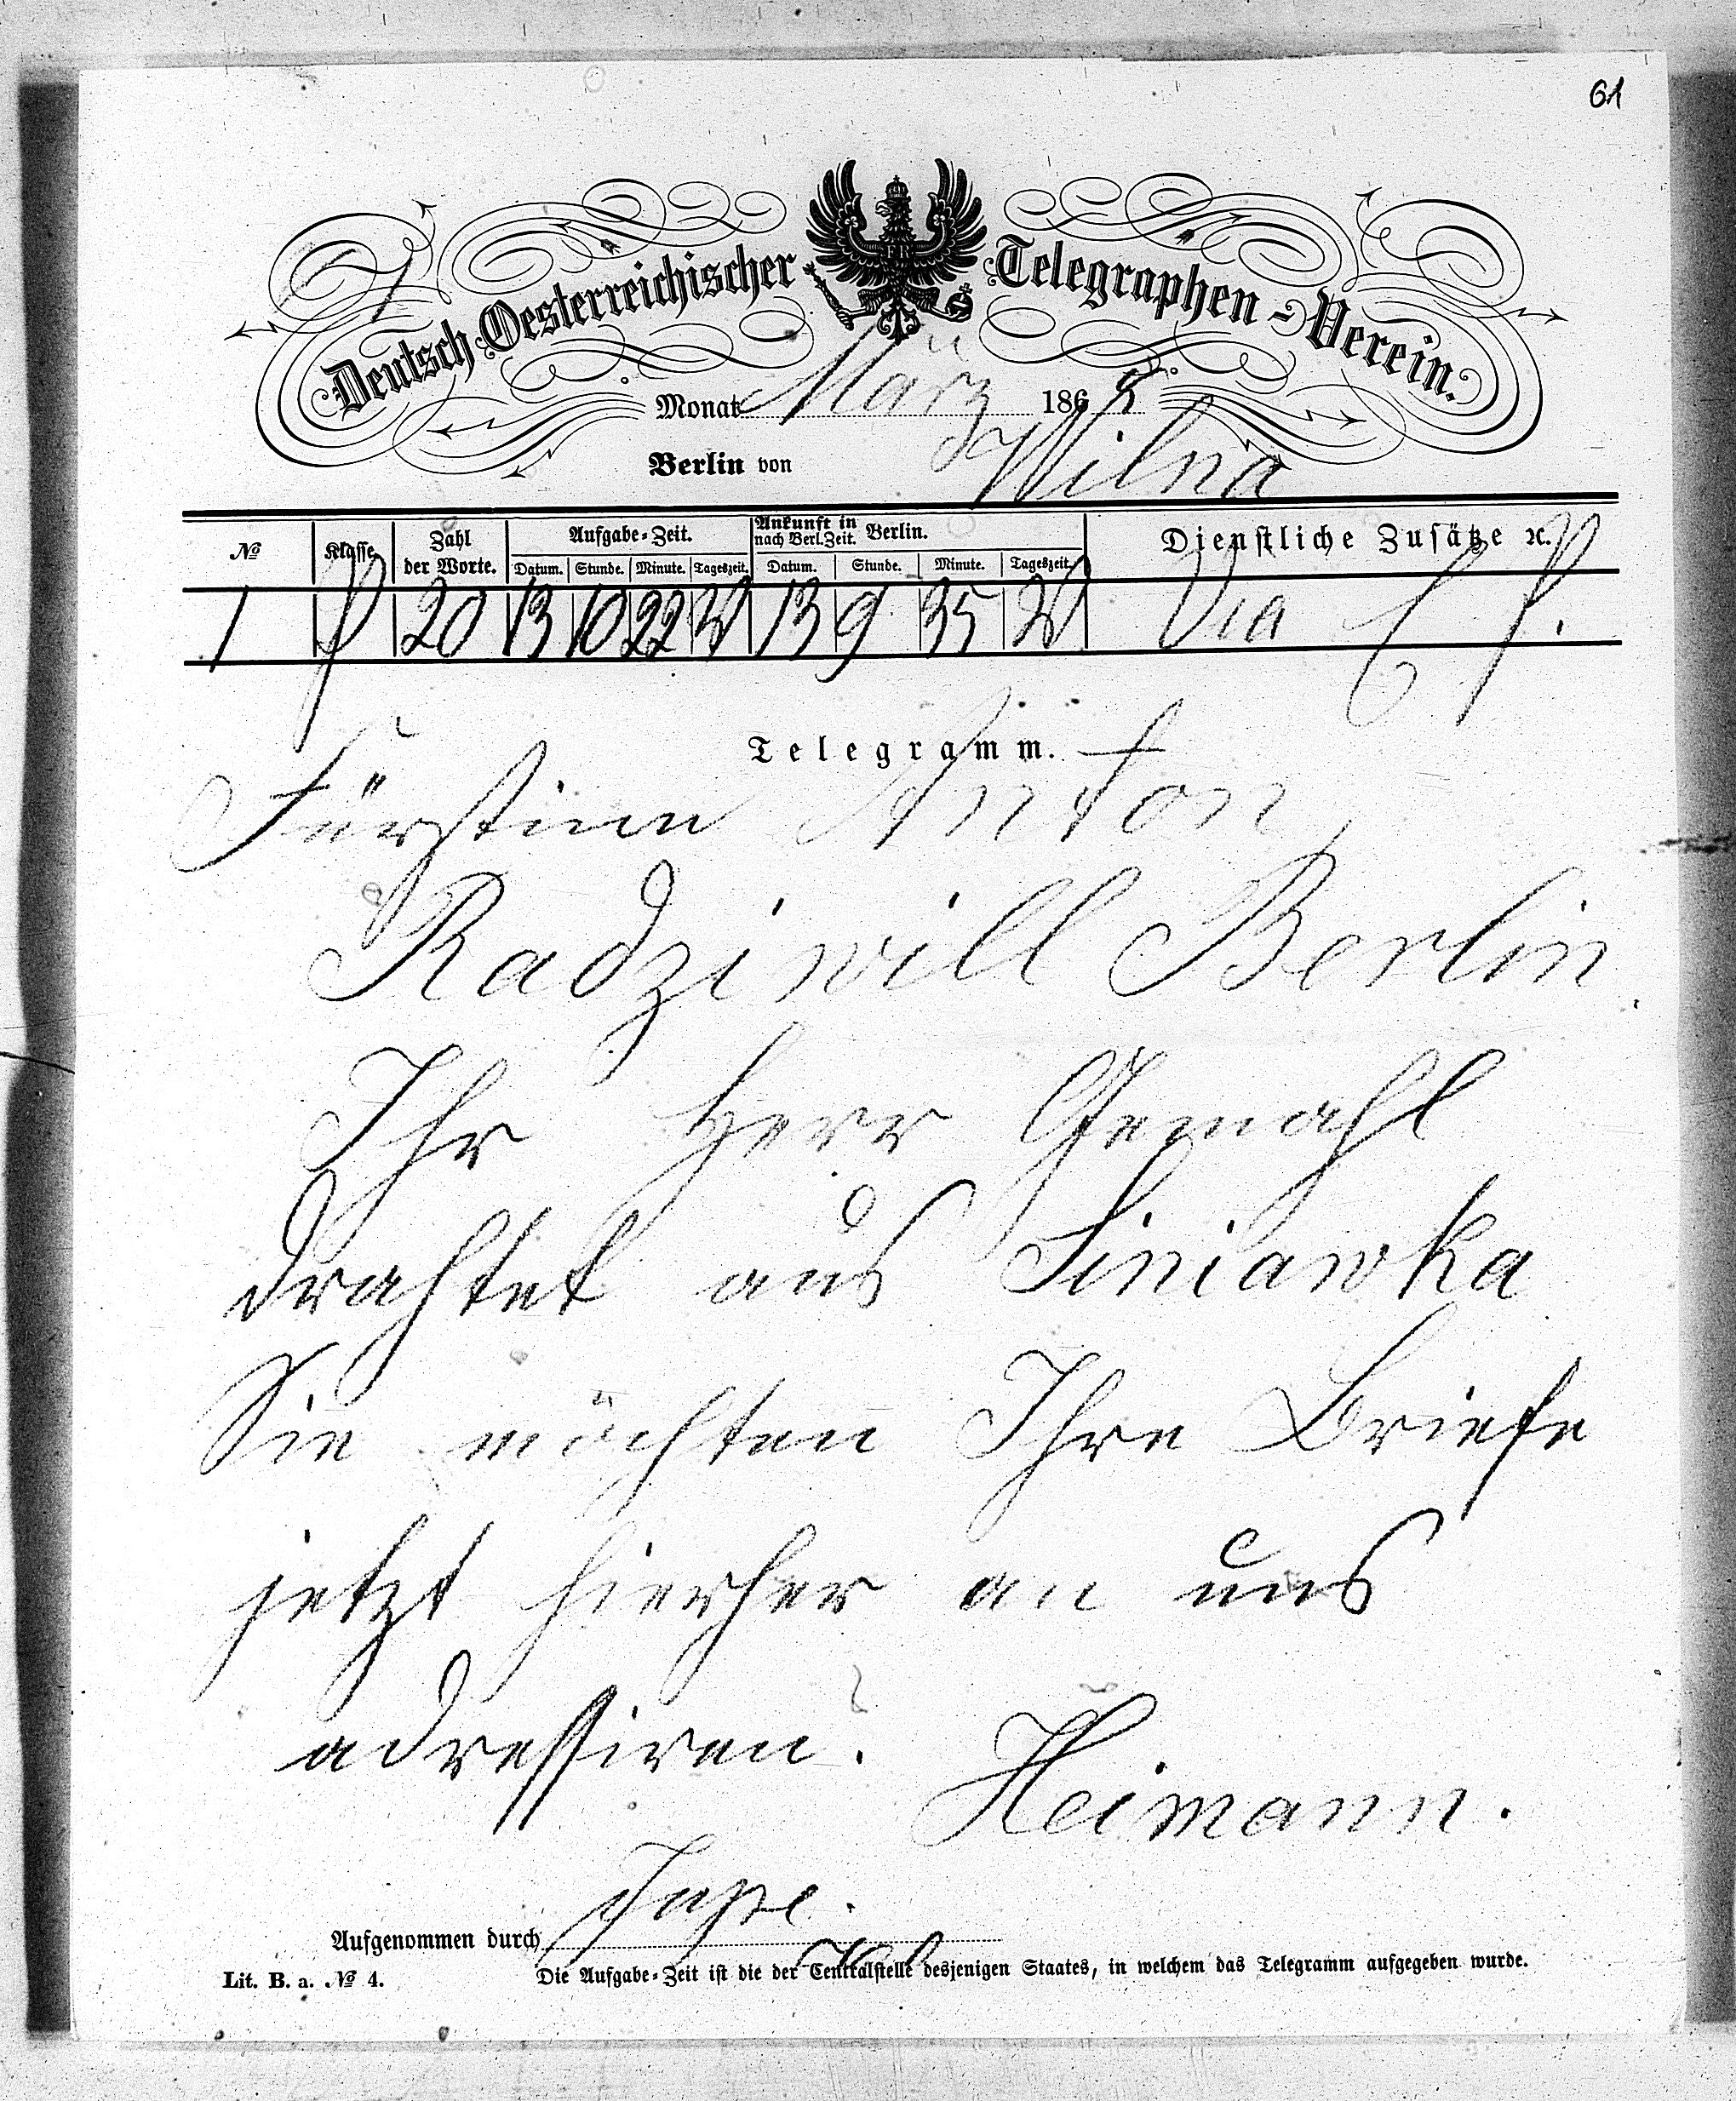 61
Deutsch-Oesterreichischer Telegraphen-Verein.
Monat März 186
Berlin von Wilna
№ Klasse Zahl der Worte. Aufgabe-Zeit. Ankunft in Berlin. nach Berl. Zeit. Dienstliche Zusätze ꝛc.
Datum. Stunde. Minute. Tageszeit. Datum. Stunde. Minute. Tageszeit.
1 P 20 13 10 22 13 9 35 Via
Telegramm.
Fürstinn Anton
Radziwill Berlin.
Ihr Herr Gemahl
drahtet aus Siniawka
Sie möchten Ihre Briefe
jetzt hierher an uns
adressiren.
Heimann.
Aufgenommen durch
Lit. B. a. № 4. Die Aufgabe-Zeit ist die der Centralstelle desjenigen Staates, in welchem das Telegramm aufgegeben wurde.